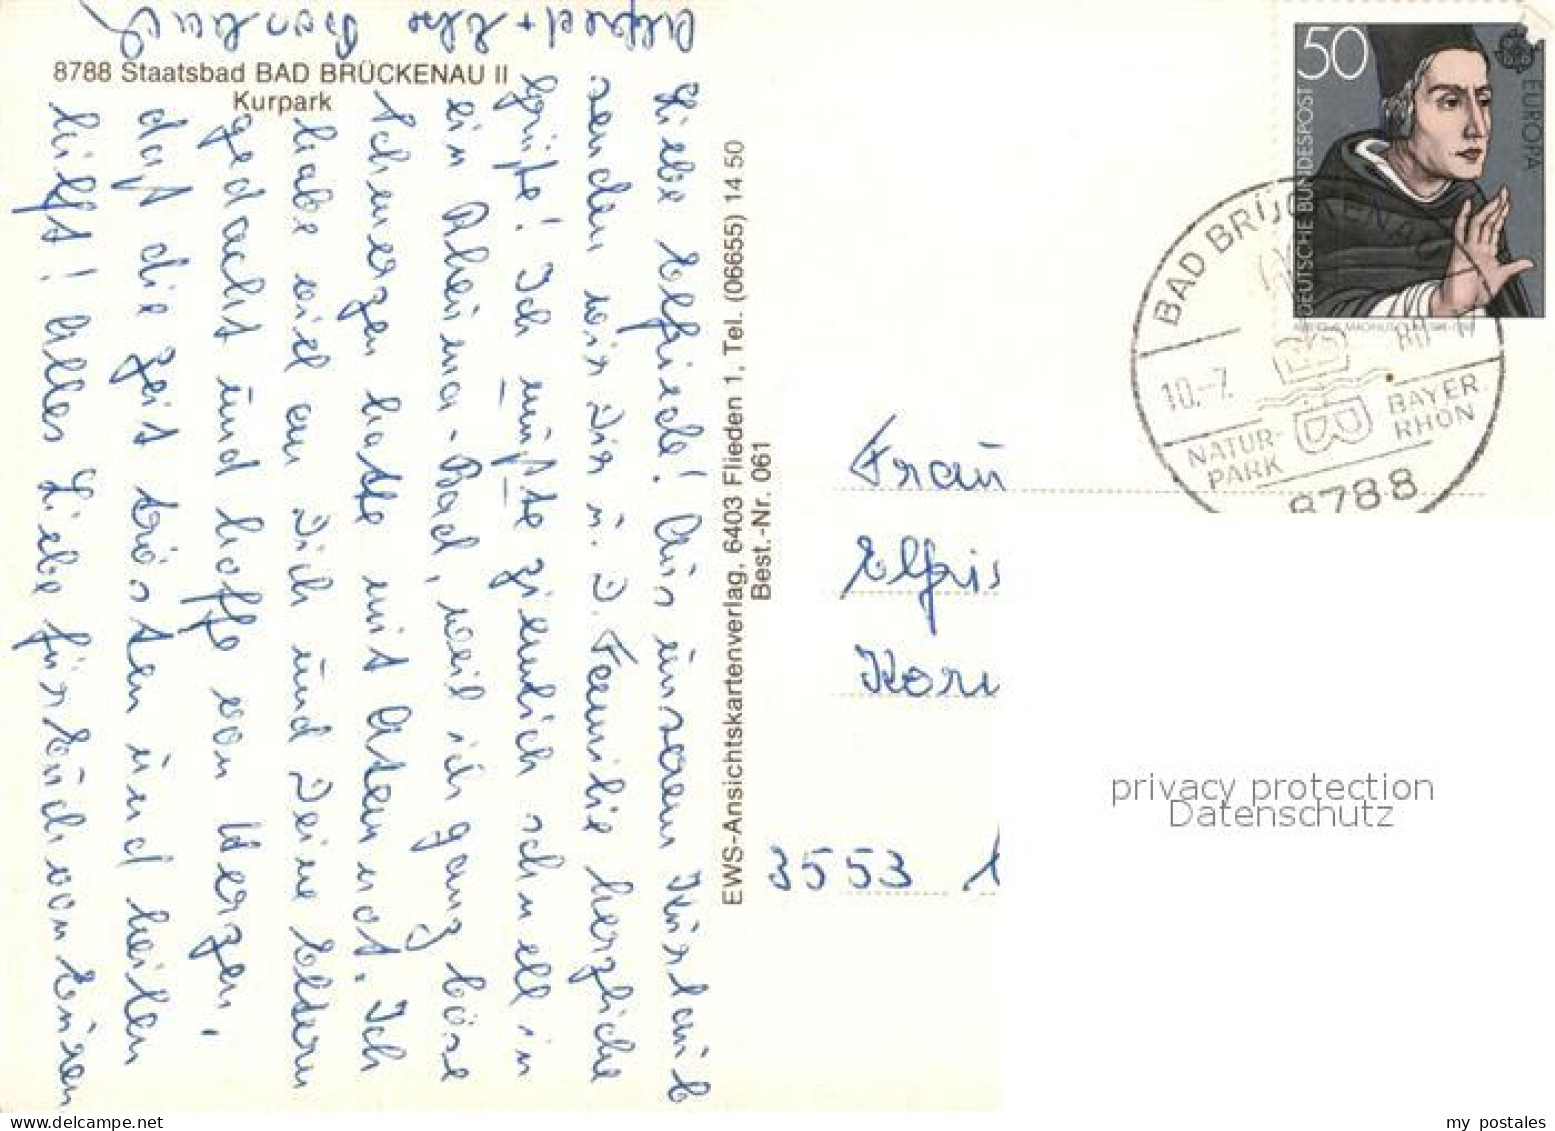 8788 Staatsbad BAD BRÜCKENAU II
Kurpark
Liebe Elfriede! Aus unserem Kurlaub
senden wir Dir u. D. Familie herzliche
Grüße! Ich mußte ziemlich schnell in
ein Rheuma-Bad, weil ich ganz böse
Schmerzen hatte mit Atemnot. Ich
habe viel an Dich und Deine Eltern
gedacht und hoffe von Herzen,
daß die Zeit trösten und heilen
hilft! Alles Liebe für Euch von Euren
Alfred +
EWS-Ansichtskartenverlag, 6403 Flieden 1, Tel. (06655) 14 50
Best.-Nr. 061
50
DEUTSCHE BUNDESPOST
EUROPA
BAD BRÜCKENAU
10.-7.
80-17
NATUR-
PARK
BAYER.
RHÖN
8788
Frau
Elfrie
Korn
3553
privacy protection
Datenschutz
my postales